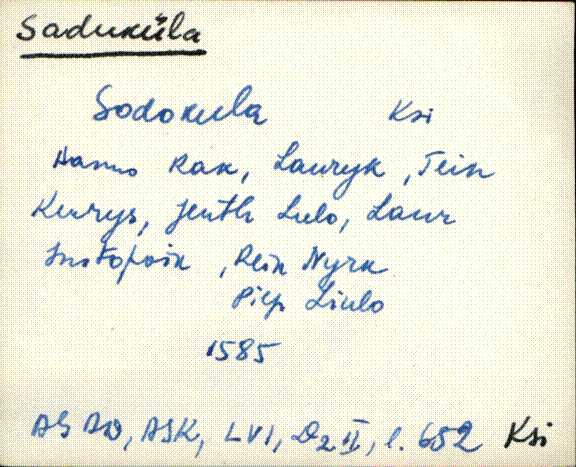 Saduküla
Sodokula Ksi
Hanno Rax, Lauryk, Tein
Kurrys, Jenth Lulo, Laur
, Rein Nyrk
Piep Liulo
1585
AG AD, ASK, LVI, D2 II, l. 652 Ksi